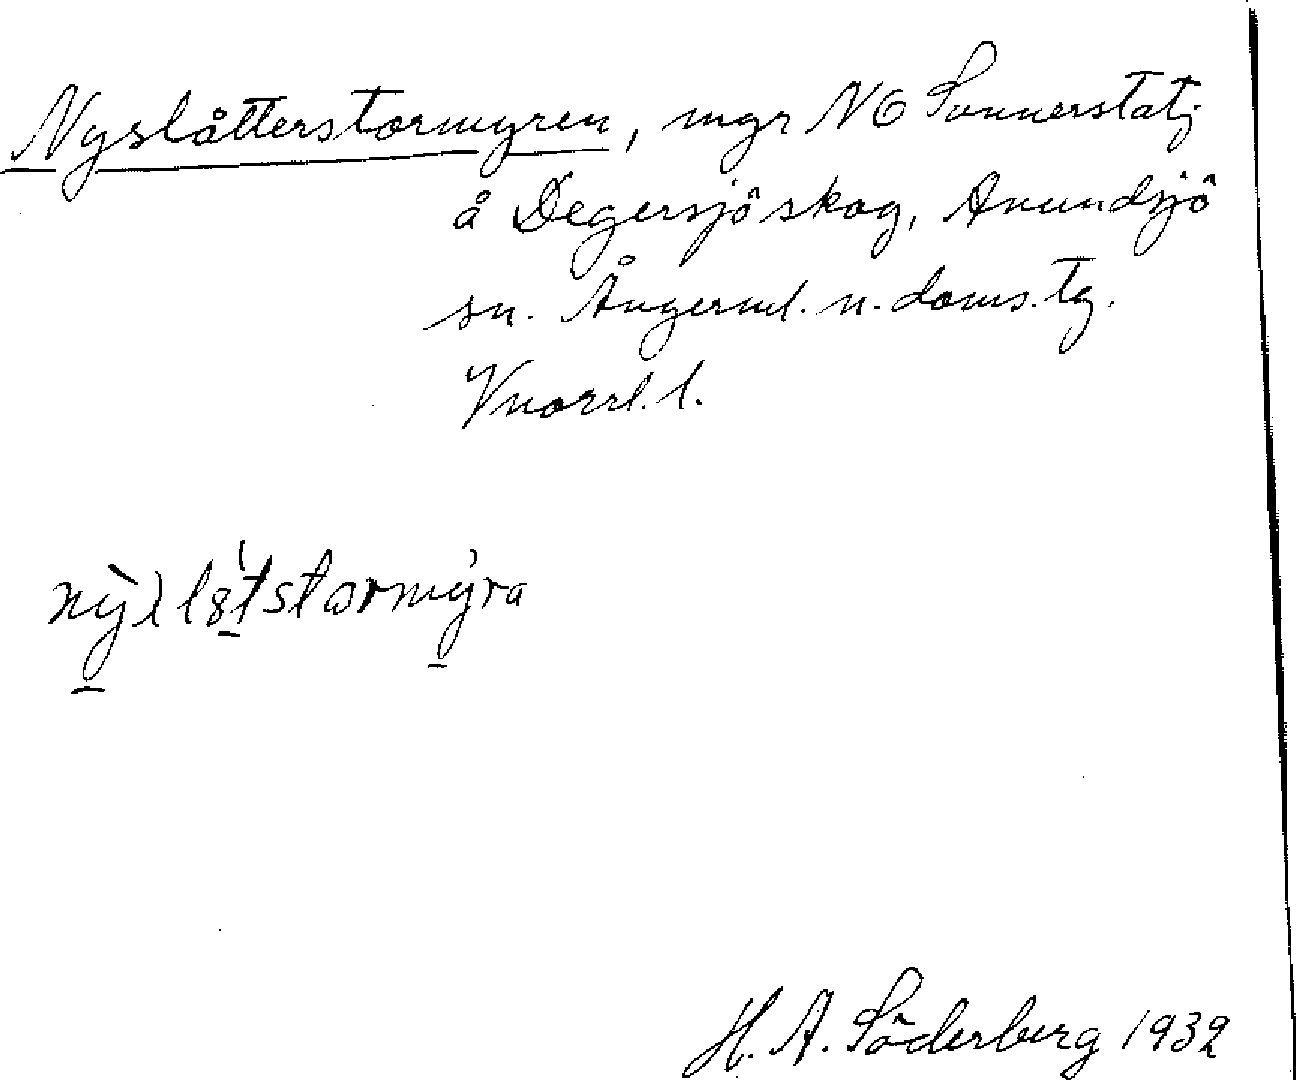 Nyslåtterstormyren, myr NO Sunnerstatj
å Degersjö skog, Anundsjö
sn. Ångerml. n. doms. tg.
Vnorrl. l.
H. A. Söderberg 1932